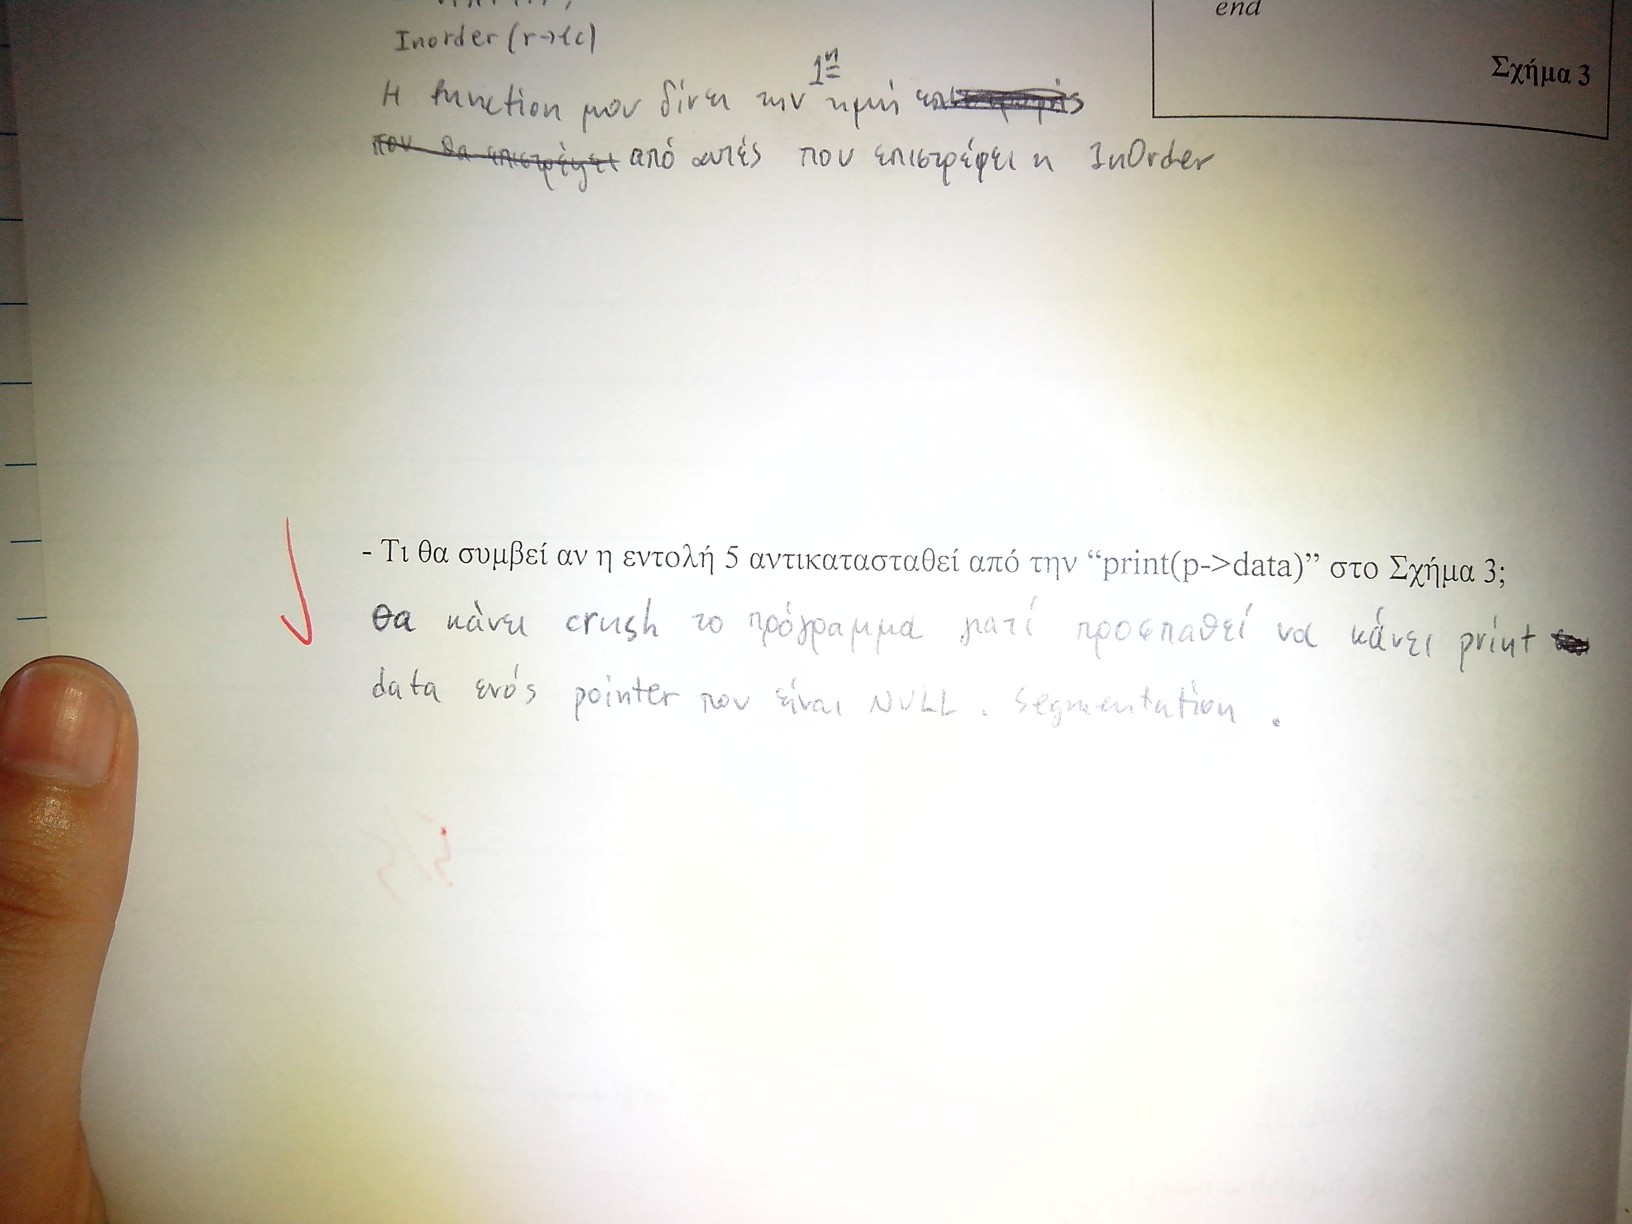 end
Inorder(r->lc)
Σχήμα 3
1η
Η function μου δίνει την τιμή
που θα επιστρέψει από αυτές που επιστρέφει η InOrder
- Τι θα συμβεί αν η εντολή 5 αντικατασταθεί από την “print(p->data)” στο Σχήμα 3;
θα κάνει crush το πρόγραμμα γιατί προσπαθεί να κάνει print
data ενός pointer που είναι NULL. Segmentation.